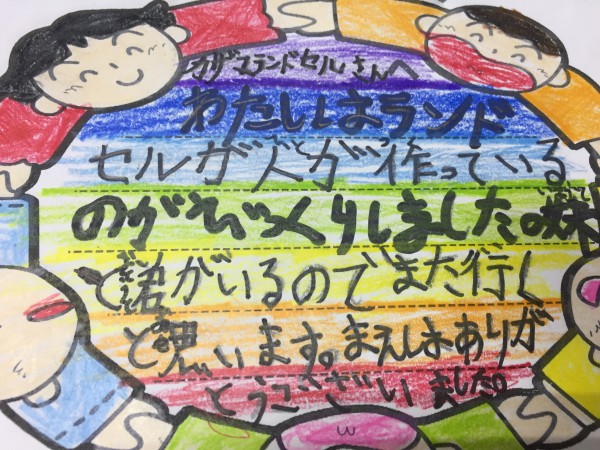 カザマランドセルさんへ
わたしはランド
セルが人が作っている
のがびっくりしました。妹
とがいるのでまた行く
と思います。まえはありが
とうございました。